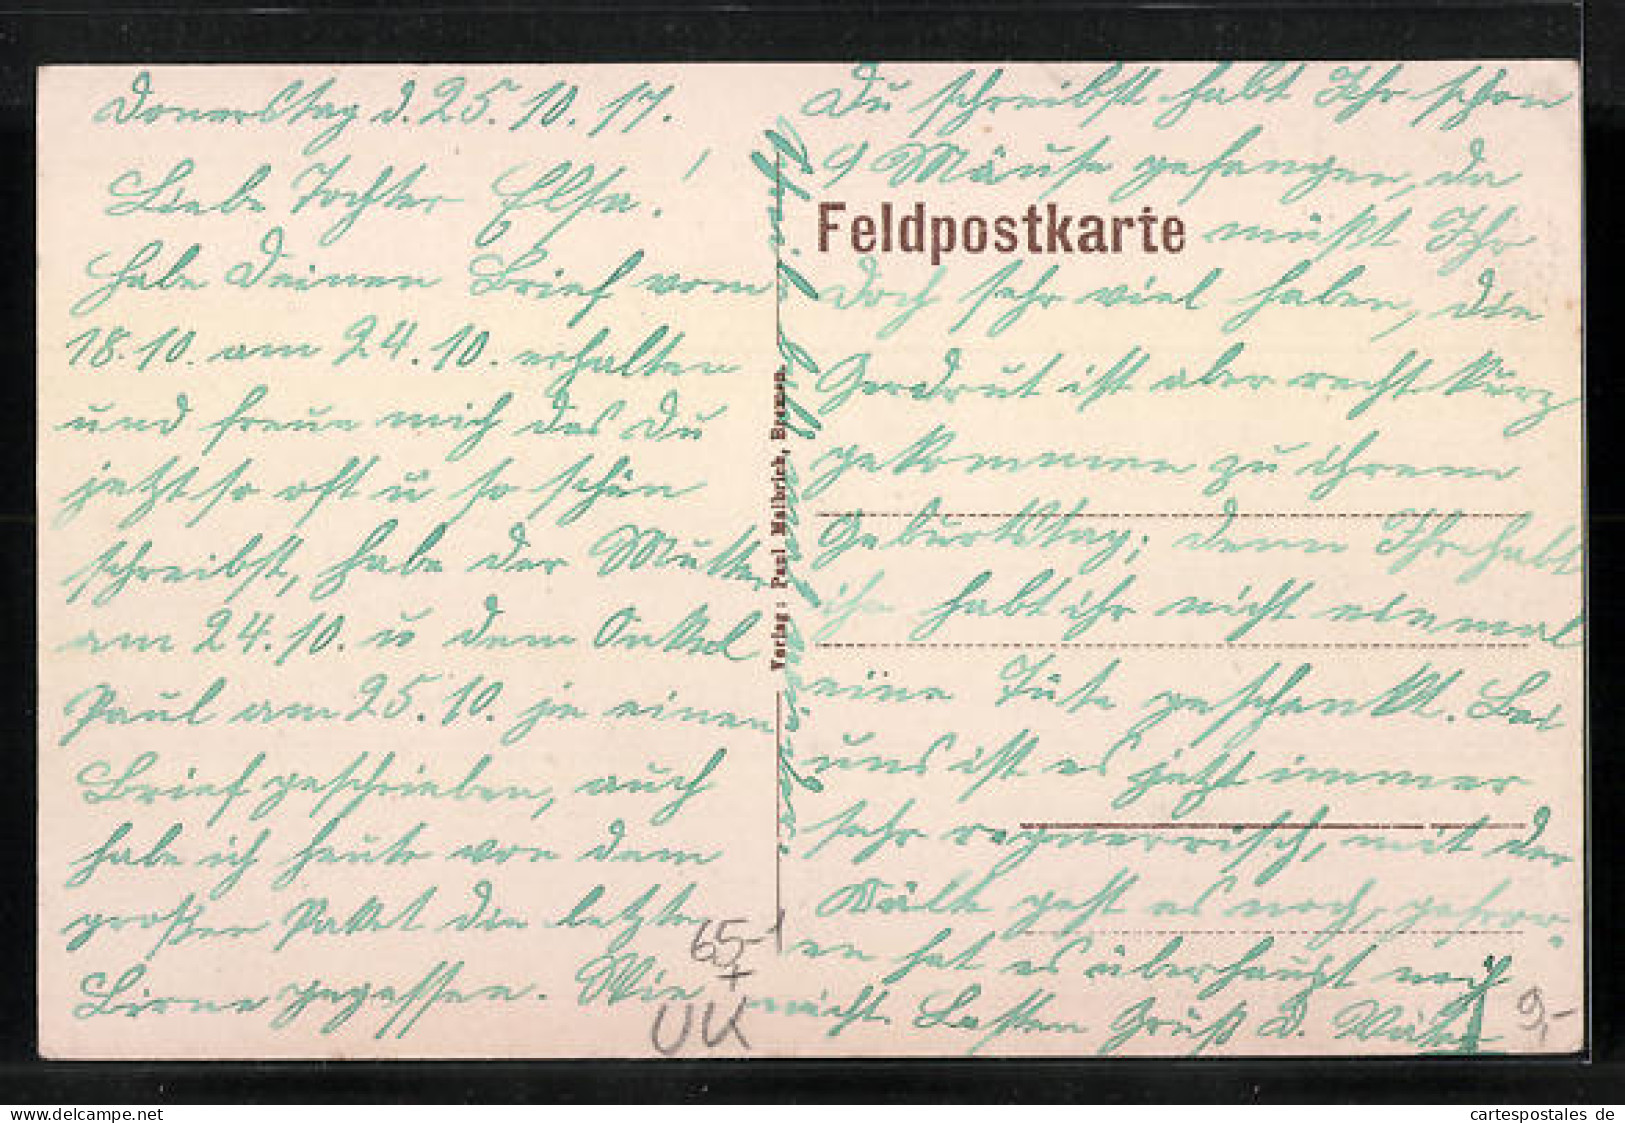 Donerstag d. 25. 10. 17.
Liebe Tochter Elsa!
Habe Deinen Brief vom
18.10. am 24.10. erhalten
und freue mich das Du
jetzt so oft u so schön
schreibst, habe der Mutter
am 24.10. u dem Onkel
Paul am 25.10. je einen
Brief geschrieben, auch
habe ich heute von dem
großen Paket die letzte
Birne gegessen. Wie
Du schreibst habt Ihr schon
9 Mäuse gefangen, da
Feldpostkarte müßt Ihr
doch sehr viel haben, die
Gerdrut ist aber recht kurz
gekommen zu ihrem
Geburtstag; denn Ihr habt
ihr habt ihr nicht einmal
eine Tüte geschenkt. Bei
uns ist es jetzt immer
sehr regnerrisch, mit der
Kälte geht es noch, gefror-
en hat es überhaupt noch
nicht. Besten Gruß d. Vater
Verlag: Paul Malbrich, Bremen.
65,-
UK
9,-
cartespostales de